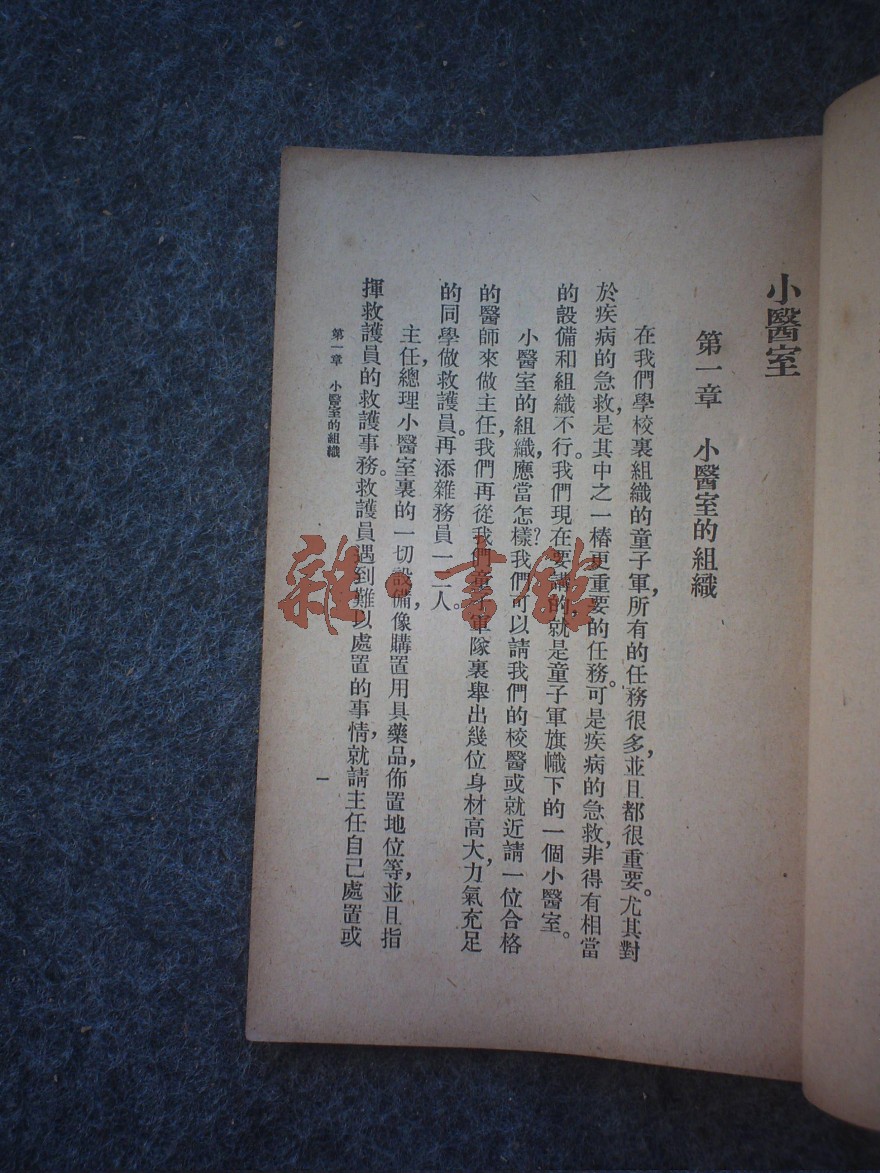 小醫室
第一章　小醫室的組織
在我們學校裏組織的童子軍所有的任務很多，並且都很重要。尤其對
於疾病的急救，是其中之一樁更重要的任務。可是疾病的急救，非得有相當
的設備和組織不行。我們現在要講的，就是童子軍旗幟下的一個小醫室。
小醫室的組織，應當怎樣？我們可以請我們的校醫或就近請一位合格
的醫師來做主任，我們再從我們童子軍隊裏舉出幾位身材高大，力氣充足
的同學做救護員。再添雜務員一二人。
主任，總理小醫室裏的一切設備，像購置用具藥品，佈置地位等，並且指
揮救護員的救護事務。救護員遇到難以處置的事情，就請主任自己處置或
第一章　小醫室的組織
一
雜·書館